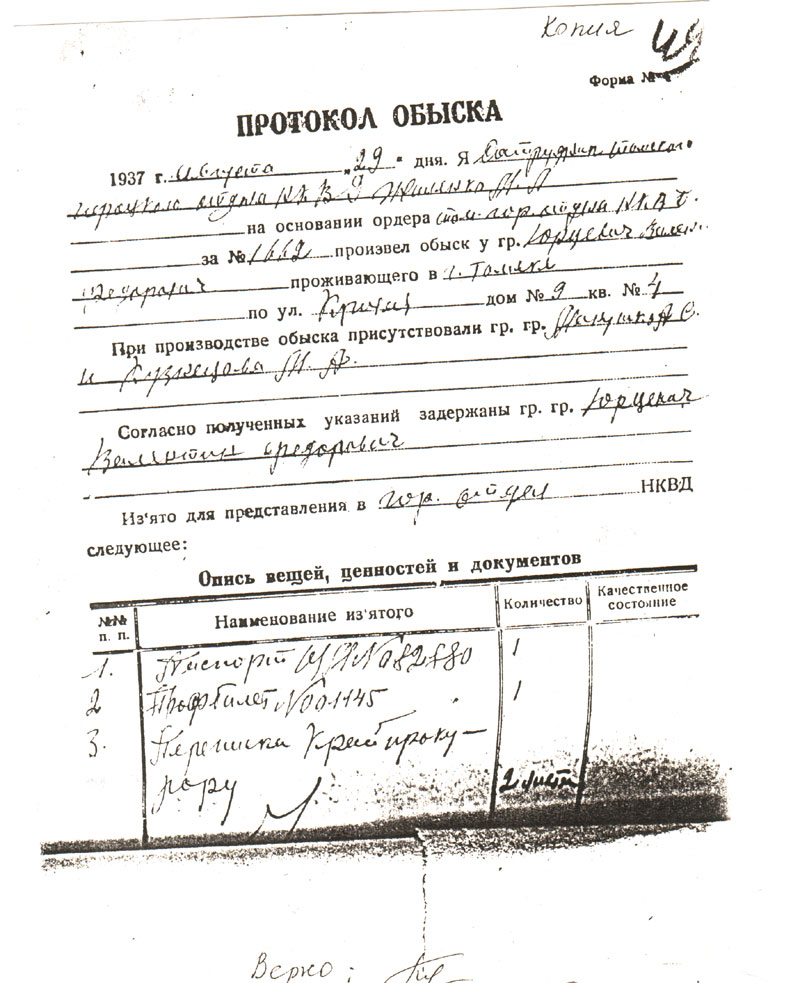 Копия 49
Форма №
ПРОТОКОЛ ОБЫСКА
1937 г. Августа „29" дня. Я Сотрудник Томского
отдела НКВД
на основании ордера Том. гор отдела НКВД
за № 1662 произвел обыск у гр. Юрцевич Вален.
Федорович проживающего в г. Томске
по ул. дом № 9 кв. № 4
При производстве обыска присутствовали гр. гр.
и Кузнецова
Согласно полученных указаний задержаны гр. гр. Юрцевич
Валентин Федорович
Из'ято для представления в гор. отдел НКВД
следующее:
Опись вещей, ценностей и документов
№№ п. п. Наименование из'ятого Количество Качественное состояние
1. Паспорт № 1
2 Профбилет № 01145 1
3. Переписка Крайпроку–
рору 2 листа
Верно: